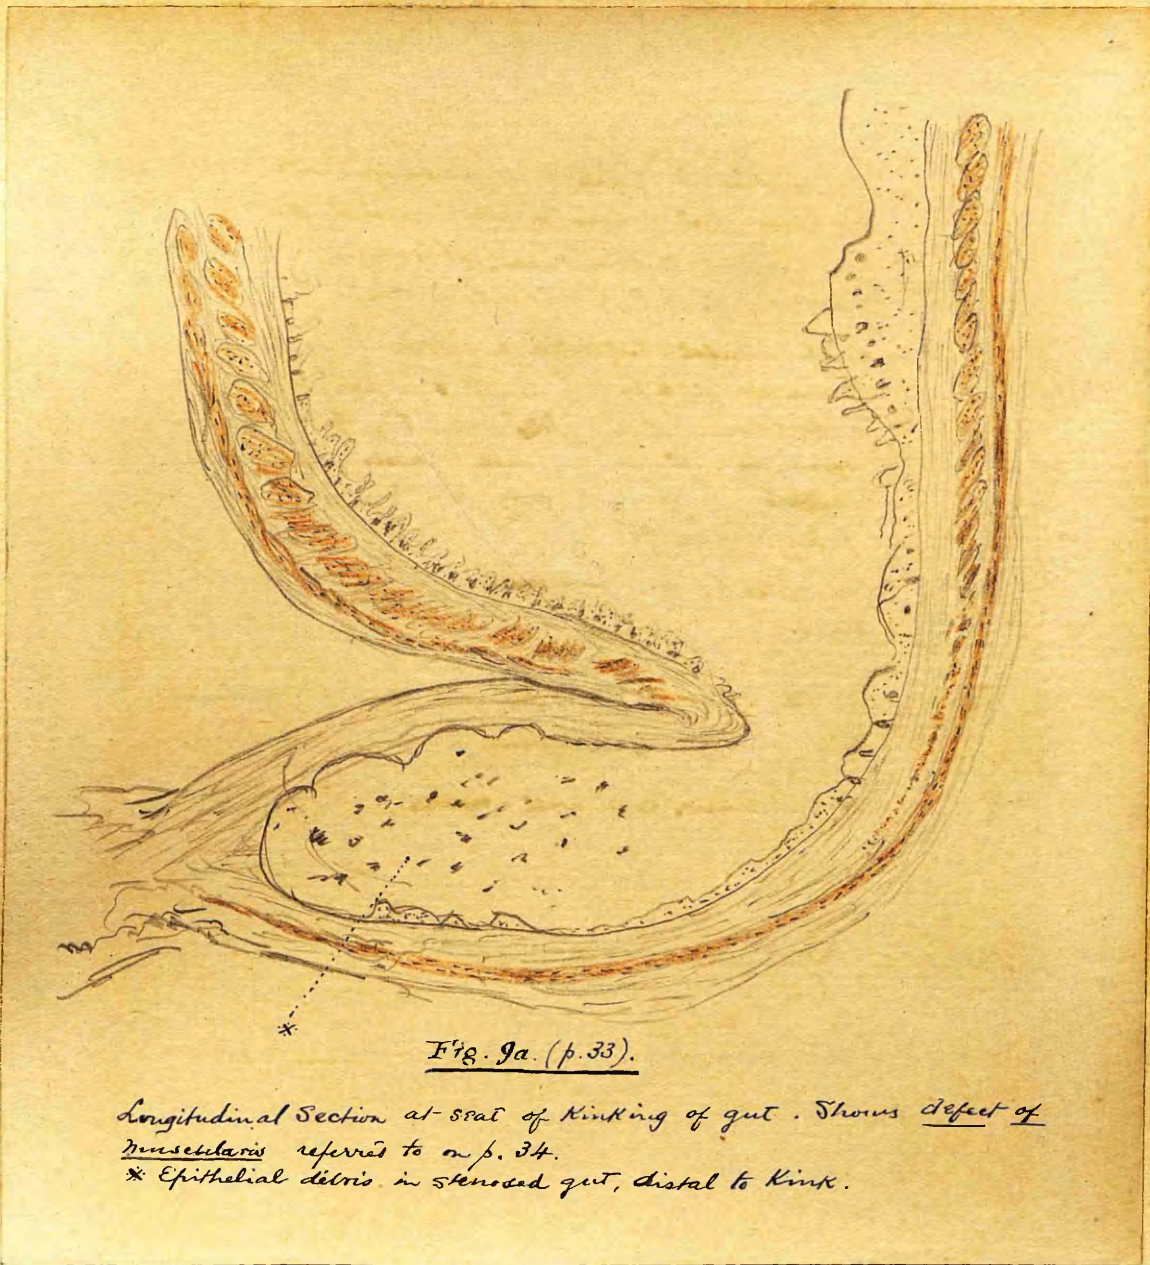 *
Fig. 9a. (p. 33).
Longitudinal Section at seat of Kinking of gut. Shows defect of
muscularis referred to on p. 34.
* Epithelial débris in stenosed gut, distal to Kink.